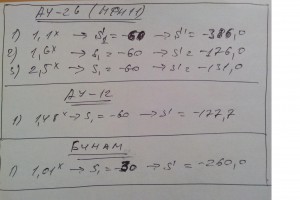 АУ-26 (МФН11)
1) 1,1ˣ → S₁ = -60 → S' = -386,0
2) 1,6ˣ → S₁ = -60 → S' = -176,0
3) 2,5ˣ → S₁ = -60 → S' = -131,0
АУ-12
1) 1,48ˣ → S₁ = -60 → S' = -177,7
БИНАМ
1) 1,01ˣ → S₁ = -30 → S' = -260,0